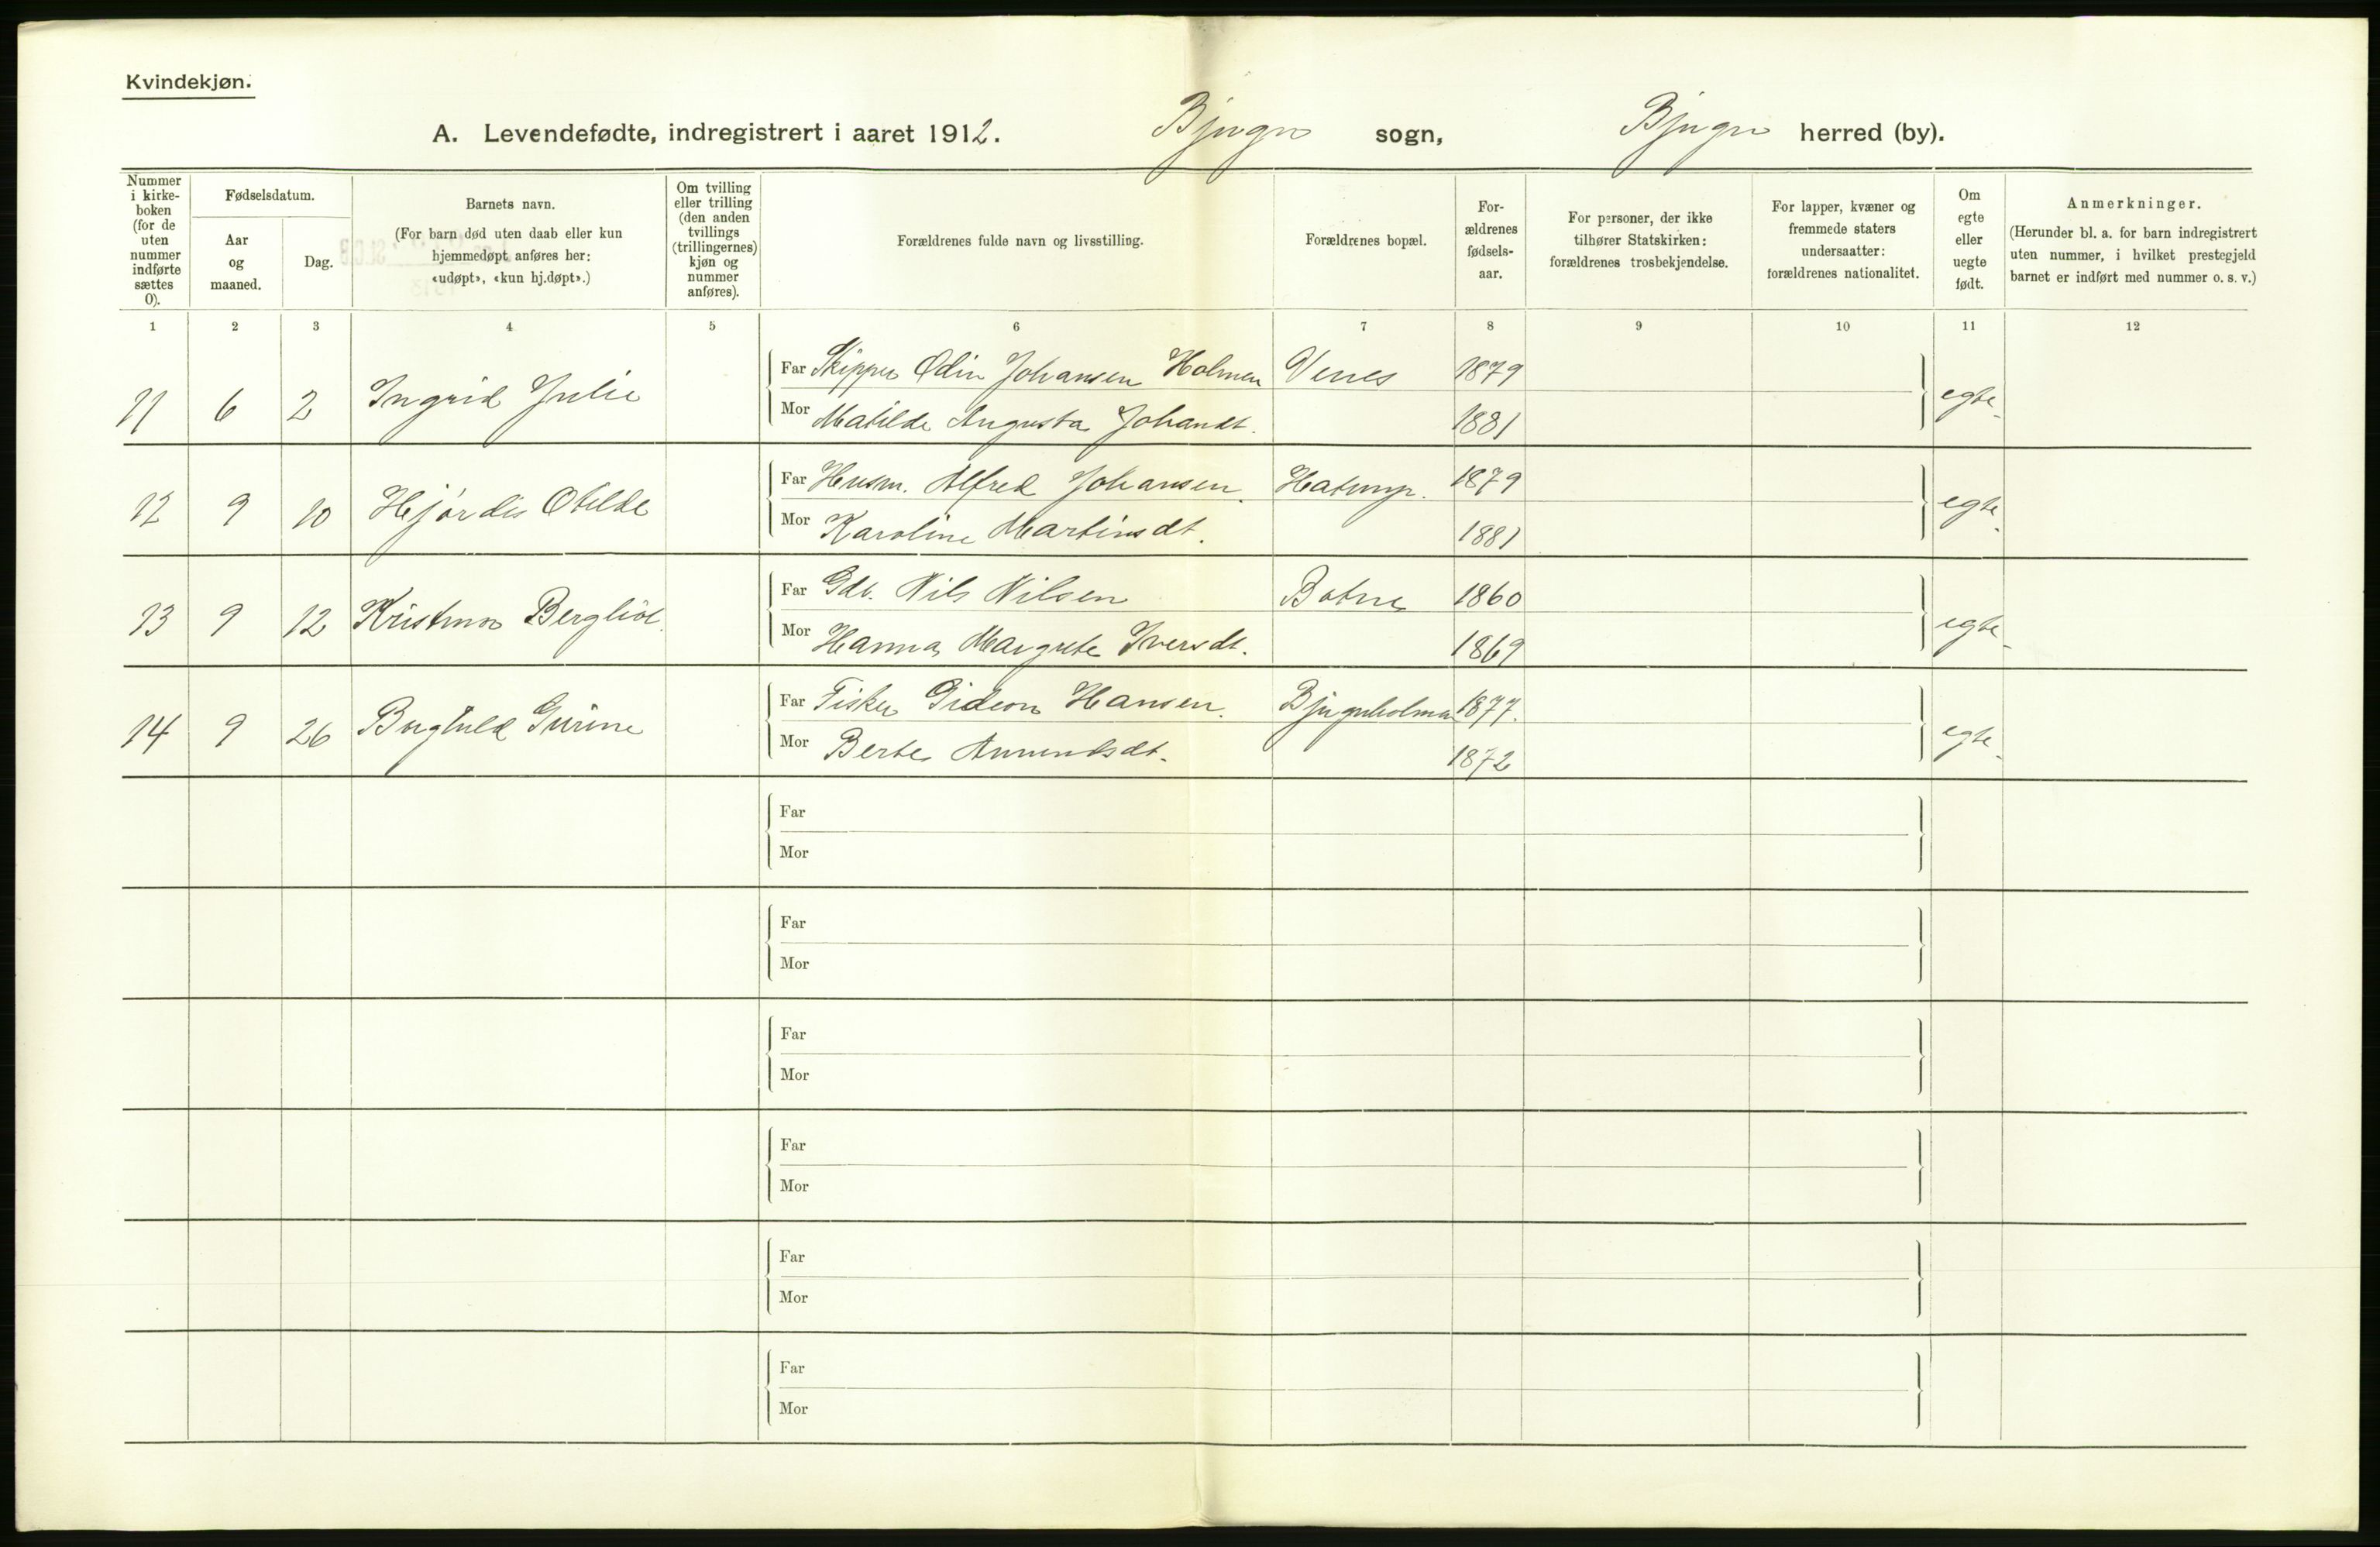 Kvindekjøn.
A. Levendefødte, indregistrert i aaret 1912. Bjugn sogn, Bjugn herred (by).
Nummer i kirke-boken (for de uten nummer indførte sættes 0).
Fødselsdatum.
Aar og maaned.
Dag.
Barnets navn.
(For barn død uten daab eller kun hjemmedøpt anføres her: «udøpt», «kun hj.døpt».)
Om tvilling eller trilling (den anden tvillings (trillingernes) kjøn og nummer anføres).
Forældrenes fulde navn og livsstilling.
Forældrenes bopæl.
For-ældrenes fødsels-aar.
For personer, der ikke tilhører Statskirken: forældrenes trosbekjendelse.
For lapper, kvæner og fremmede staters undersaatter: forældrenes nationalitet.
Om egte eller uegte født.
Anmerkninger.
(Herunder bl. a. for barn indregistrert uten nummer, i hvilket prestegjeld barnet er indført med nummer o. s. v.)
1 2 3 4 5 6 7 8 9 10 11 12
Far Skipper Odin Johansen Holmen Venes 1879
11 6 2 Ingrid Julie egte
Mor Matilde Augusta Johansdt. 1881
Far Husm. Alfred Johansen. 1879
12 9 10 Hjørdis Otelde egte
Mor Karoline Martinsdt. 1881
Far Gdb. Nils Nilsen Botne 1860
13 9 12 Bergliot egte
Mor Hanna Margrete Iversdt. 1869
Far Fisker Gideon Hansen. Bjugnholmen 1877.
14 9 26 egte
Mor Berte 1872
Far
Mor
Far
Mor
Far
Mor
Far
Mor
Far
Mor
Far
Mor